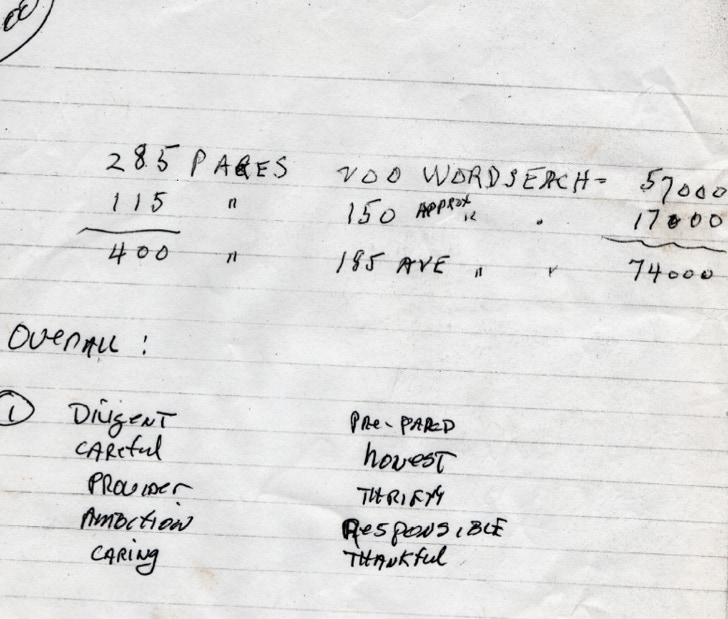 285 PAGES 200 WORDS EACH = 57000
115 " 150 APPROX " . 17000
400 " 185 AVE " " 74000
OVERALL :
1 DILIGENT PRE-PARED
CAREFUL HONEST
PROVIDER THRIFTY
AMBITION RESPONSIBLE
CARING THANKFUL